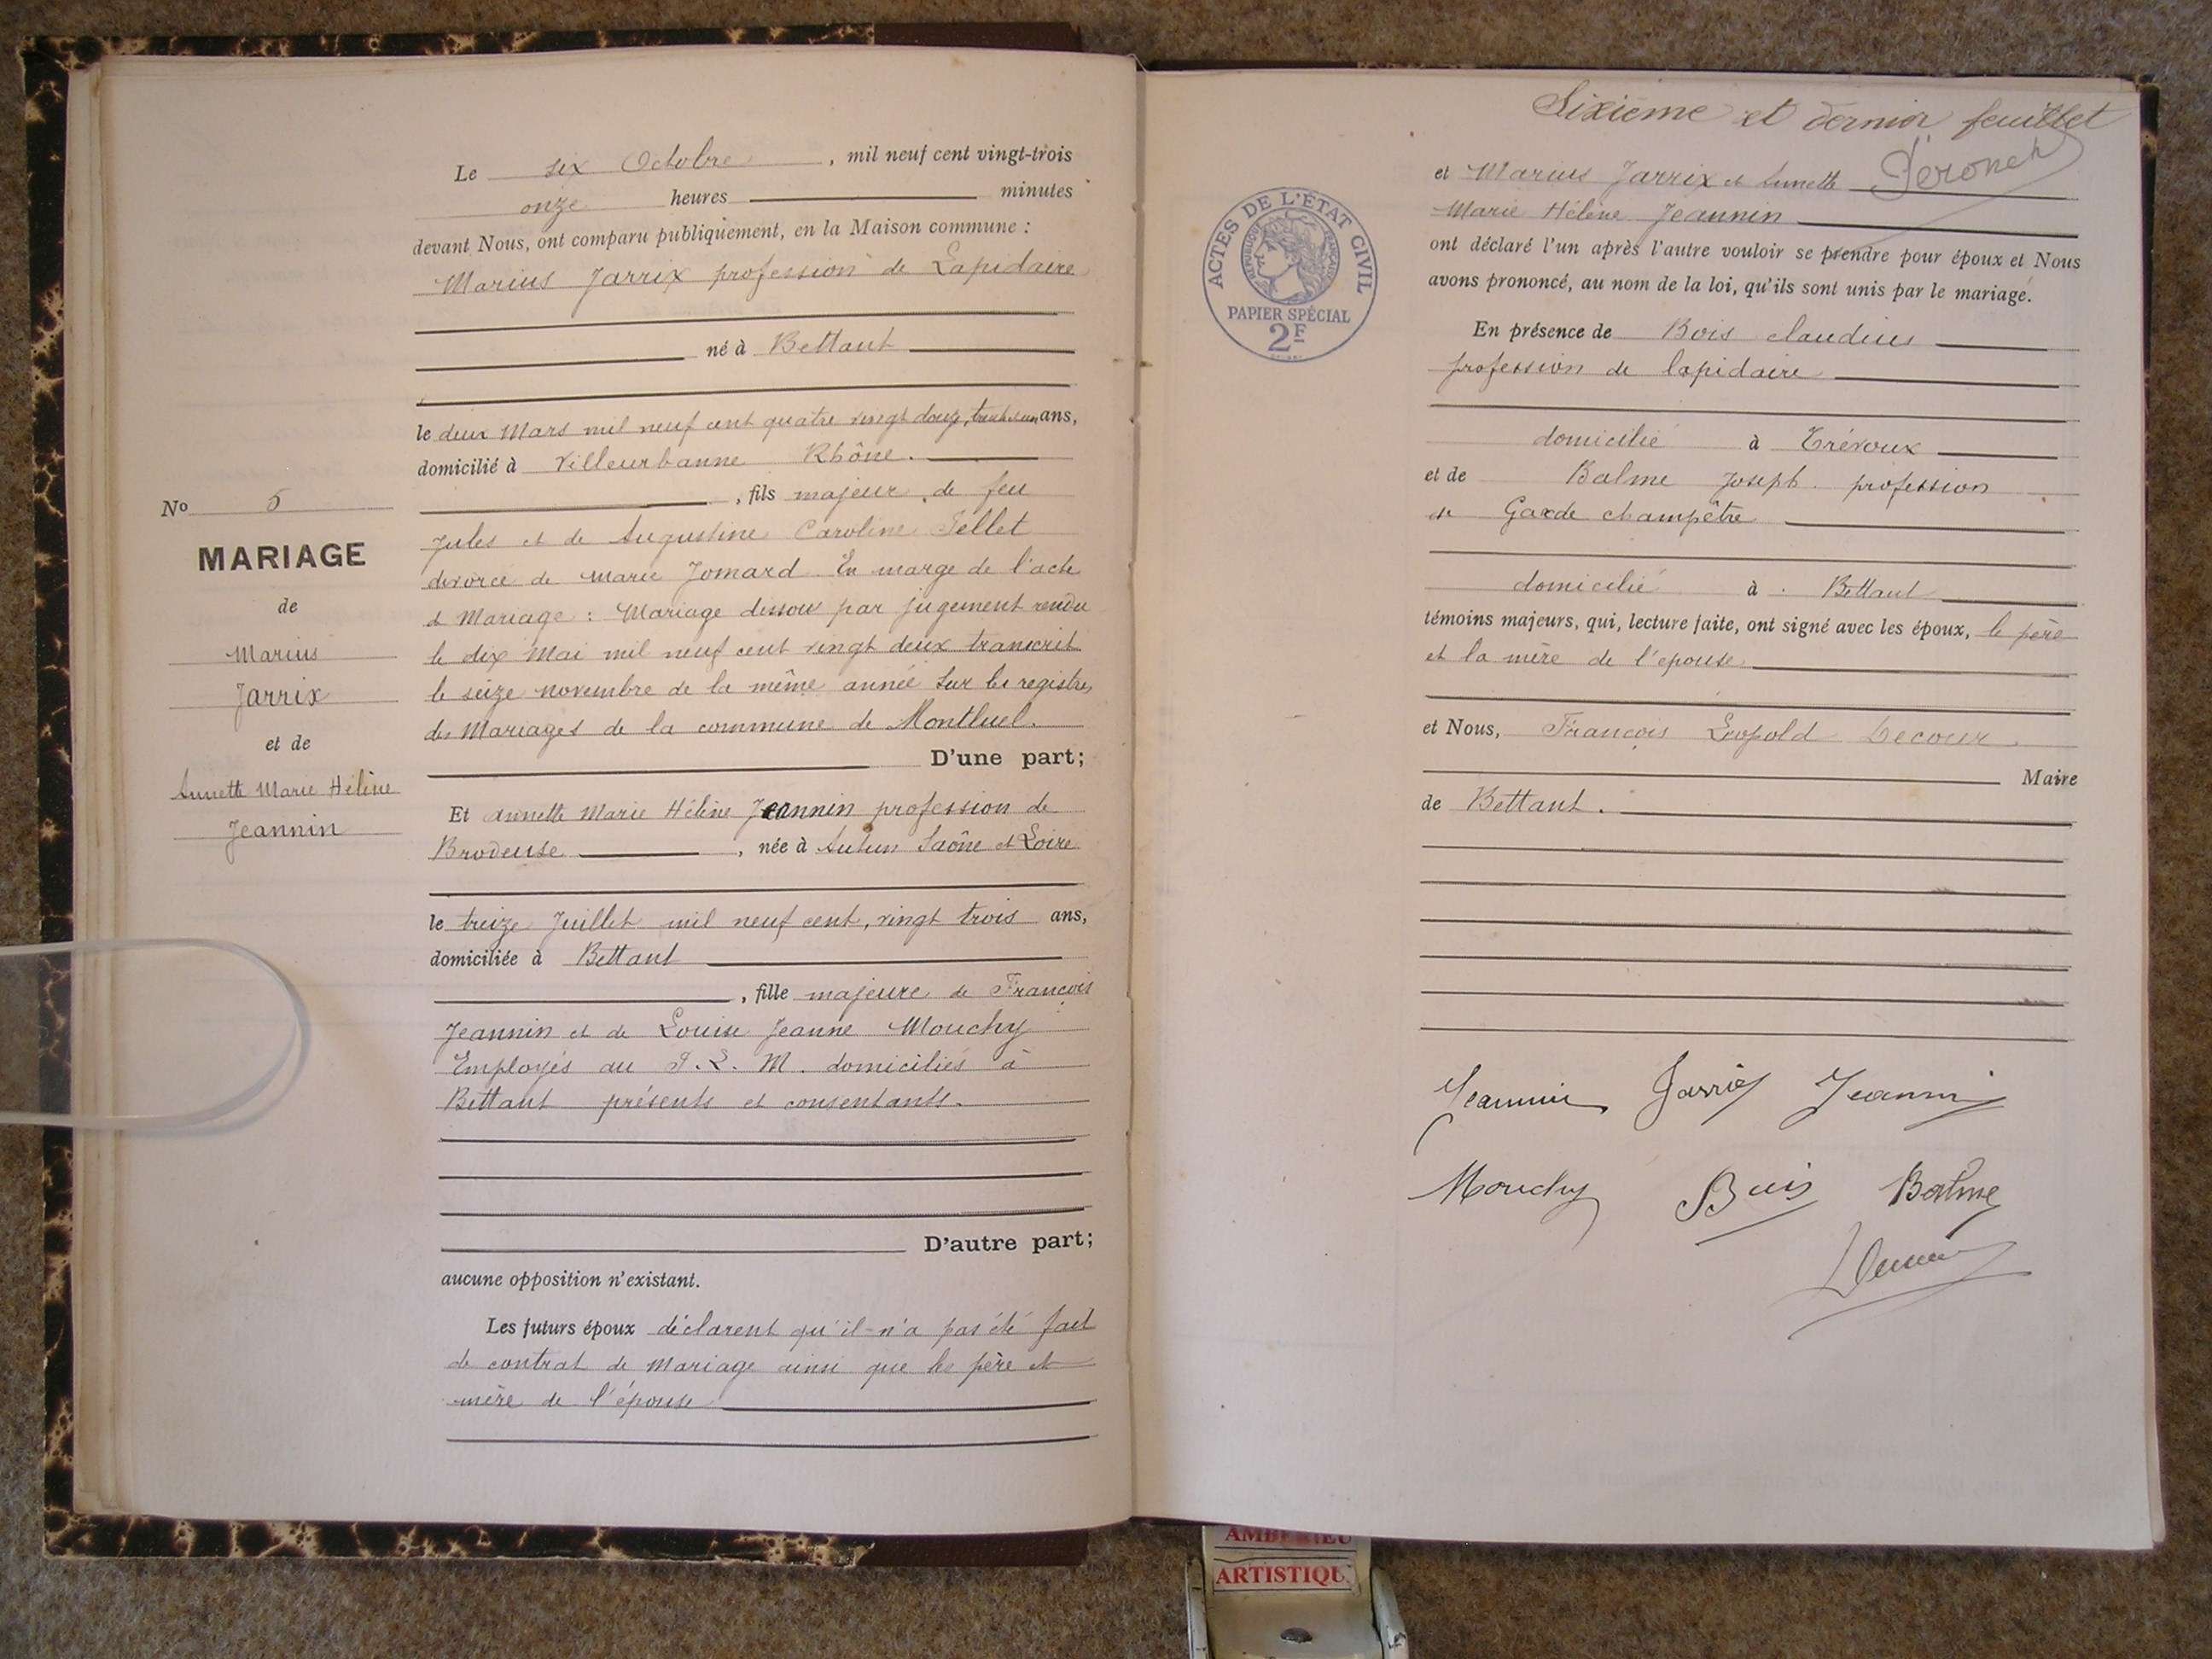 Le six Octobre, mil neuf cent vingt-trois
onze heures minutes
devant Nous, ont comparu publiquement, en la Maison commune :
Marius Jarrix profession de Lapidaire
né à Bettant
le deux Mars mil neuf cent quatre vingt douze, trente et un ans,
domicilié à Villeurbanne Rhône.
, fils majeur de feu
Jules et de Augustine Caroline Pellet
divorcé de Marie Jomard En marge de l'acte
de Mariage : Mariage dissous par jugement rendu
le dix Mai mil neuf cent vingt deux transcrit
le seize novembre de la même année sur les registres
des Mariages de la commune de Montluel.
D'une part;
No 5
MARIAGE
de
Marius
Jarrix
et de
Annette Marie Hélène
Jeannin
Et Annette Marie Hélène Jeannin profession de
Brodeuse, née à Autun Saône et Loire
le treize Juillet mil neuf cent, vingt trois ans,
domiciliée à Bettant
, fille majeure de François
Jeannin et de Louise Jeanne Mouchy
Employés au P.L.M. domiciliés à
Bettant présents et consentants.
D'autre part;
aucune opposition n'existant.
Les futurs époux déclarent qu'il n'a pas été fait
de contrat de Mariage ainsi que les père et
mère de l'épouse
Sixième et dernier feuillet
et Marius Jarrix et Annette
Marie Hélène Jeannin
ont déclaré l'un après l'autre vouloir se prendre pour époux et Nous
avons prononcé, au nom de la loi, qu'ils sont unis par le mariage.
ACTES DE L'ÉTAT CIVIL
RÉPUBLIQUE FRANÇAISE
PAPIER SPÉCIAL
2F
En présence de Bois claudius
profession de lapidaire
domicilié à Trévoux
et de Balme Joseph. profession
de Garde champêtre
domicilié à Bettant
témoins majeurs, qui, lecture faite, ont signé avec les époux, le père
et la mère de l'epouse
et Nous, François Léopold Lecour
Maire
de Bettant.
Jeannin Jarrix Jeannin
Mouchy Bois Balme
AMBERIEU
ARTISTIQU